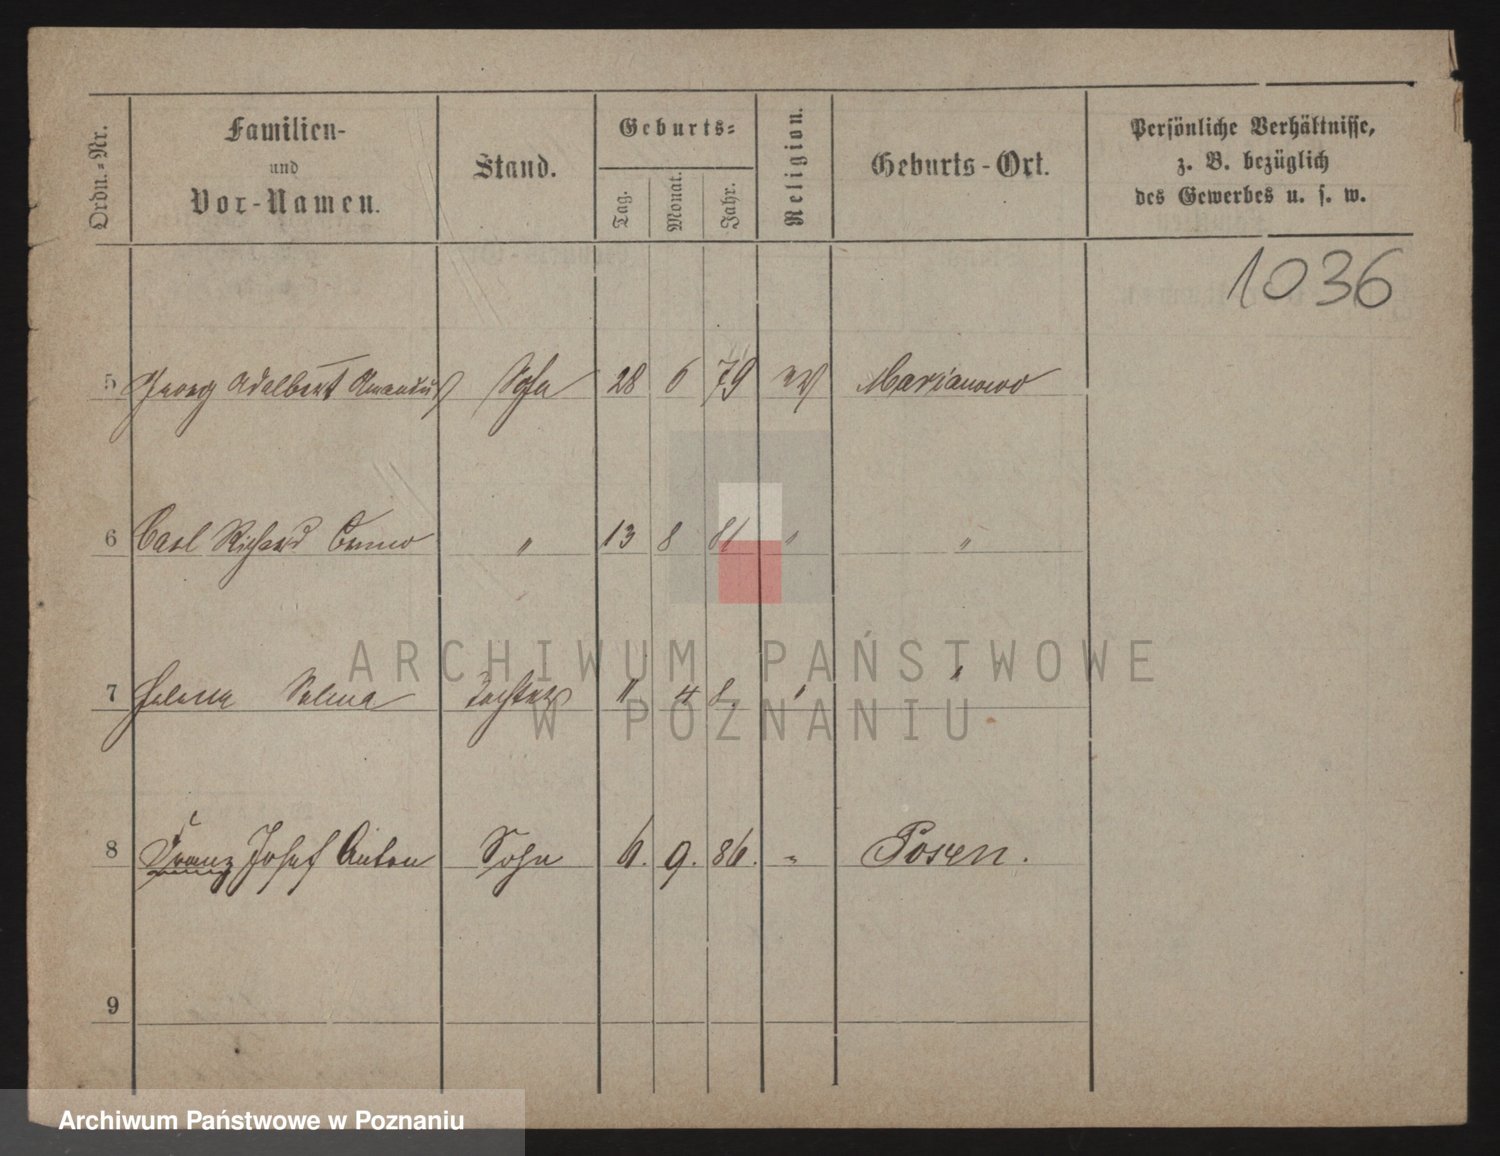 Ordn.-Nr. Familien- und Vor-Namen. Stand. Geburts- Tag. Monat. Jahr. Religion. Geburts-Ort. Persönliche Verhältnisse, z. B. bezüglich des Gewerbes u. s. w.
1036
5 Georg Adelbert Amandus Sohn 28 6 79 ev Marianowo
6 Carl Richard Cuno " 13 8 81 " "
7 Helene Selma Tochter 11 4 8 " "
8 Franz Josef Anton Sohn 6. 9. 86. " Posen.
9
ARCHIWUM PAŃSTWOWE
W POZNANIU
Archiwum Państwowe w Poznaniu